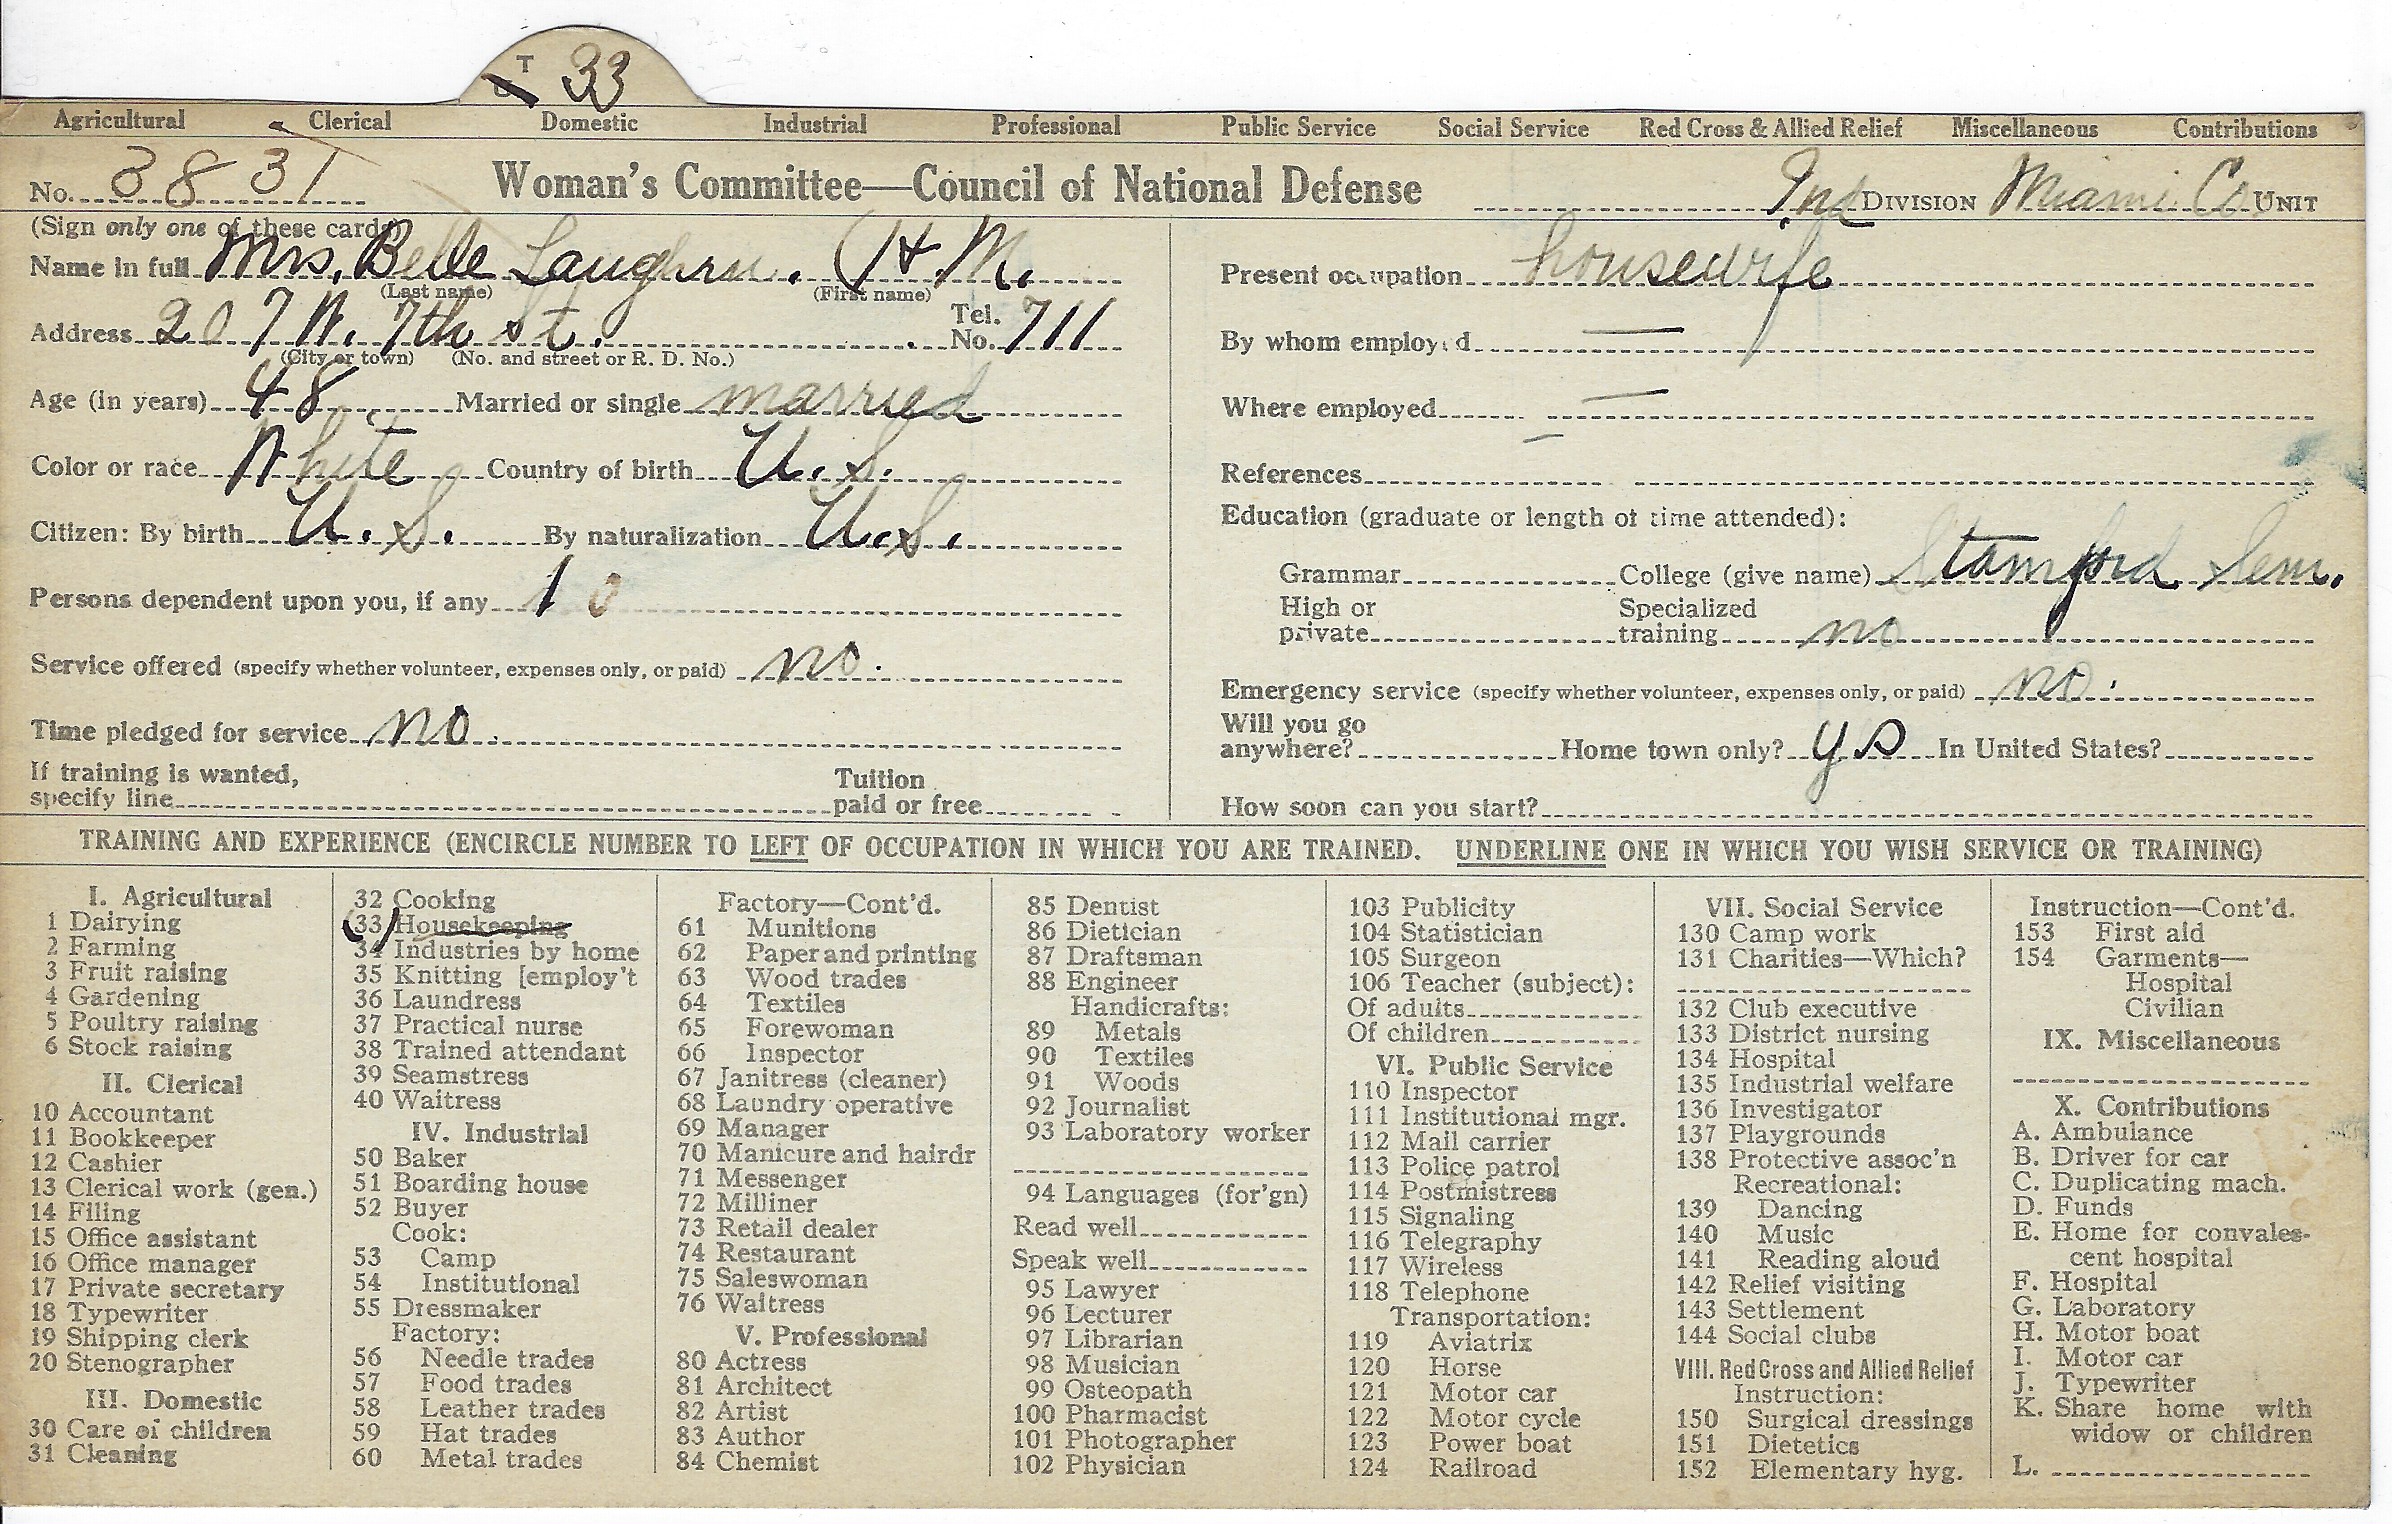 T 33
Agricultural Clerical Domestic Industrial Professional Public Service Social Service Red Cross & Allied Relief Miscellaneous Contributions
No. 3831 Woman's Committee—Council of National Defense Ind DIVISION Miami Co. UNIT
(Sign only one of these cards)
Name in full Mrs. Belle (H. M.
(Last name) (First name)
Address 207 W. 7th st. Tel. No. 711
(City or town) (No. and street or R. D. No.)
Age (in years) 48 Married or single married
Color or race White Country of birth U. S.
Citizen: By birth U. S. By naturalization U. S.
Persons dependent upon you, if any 10
Service offered (specify whether volunteer, expenses only, or paid) no.
Time pledged for service no.
If training is wanted,
specify line
Tuition
paid or free
Present occupation housewife
By whom employed —
Where employed —
References —
Education (graduate or length of time attended):
Grammar College (give name) Stamford Sem.
High or
private
Specialized
training no
Emergency service (specify whether volunteer, expenses only, or paid) no.
Will you go
anywhere? Home town only? ys In United States?
How soon can you start?
TRAINING AND EXPERIENCE (ENCIRCLE NUMBER TO LEFT OF OCCUPATION IN WHICH YOU ARE TRAINED. UNDERLINE ONE IN WHICH YOU WISH SERVICE OR TRAINING)
I. Agricultural
1 Dairying
2 Farming
3 Fruit raising
4 Gardening
5 Poultry raising
6 Stock raising
II. Clerical
10 Accountant
11 Bookkeeper
12 Cashier
13 Clerical work (gen.)
14 Filing
15 Office assistant
16 Office manager
17 Private secretary
18 Typewriter
19 Shipping clerk
20 Stenographer
III. Domestic
30 Care of children
31 Cleaning
32 Cooking
33 Housekeeping
34 Industries by home
35 Knitting [employ't
36 Laundress
37 Practical nurse
38 Trained attendant
39 Seamstress
40 Waitress
IV. Industrial
50 Baker
51 Boarding house
52 Buyer
Cook:
53 Camp
54 Institutional
55 Dressmaker
Factory:
56 Needle trades
57 Food trades
58 Leather trades
59 Hat trades
60 Metal trades
Factory—Cont'd.
61 Munitions
62 Paper and printing
63 Wood trades
64 Textiles
65 Forewoman
66 Inspector
67 Janitress (cleaner)
68 Laundry operative
69 Manager
70 Manicure and hairdr
71 Messenger
72 Milliner
73 Retail dealer
74 Restaurant
75 Saleswoman
76 Waitress
V. Professional
80 Actress
81 Architect
82 Artist
83 Author
84 Chemist
85 Dentist
86 Dietician
87 Draftsman
88 Engineer
Handicrafts:
89 Metals
90 Textiles
91 Woods
92 Journalist
93 Laboratory worker
94 Languages (for'gn)
Read well
Speak well
95 Lawyer
96 Lecturer
97 Librarian
98 Musician
99 Osteopath
100 Pharmacist
101 Photographer
102 Physician
103 Publicity
104 Statistician
105 Surgeon
106 Teacher (subject):
Of adults
Of children
VI. Public Service
110 Inspector
111 Institutional mgr.
112 Mail carrier
113 Police patrol
114 Postmistress
115 Signaling
116 Telegraphy
117 Wireless
118 Telephone
Transportation:
119 Aviatrix
120 Horse
121 Motor car
122 Motor cycle
123 Power boat
124 Railroad
VII. Social Service
130 Camp work
131 Charities—Which?
132 Club executive
133 District nursing
134 Hospital
135 Industrial welfare
136 Investigator
137 Playgrounds
138 Protective assoc'n
Recreational:
139 Dancing
140 Music
141 Reading aloud
142 Relief visiting
143 Settlement
144 Social clubs
VIII. Red Cross and Allied Relief
Instruction:
150 Surgical dressings
151 Dietetics
152 Elementary hyg.
Instruction—Cont'd.
153 First aid
154 Garments—
Hospital
Civilian
IX. Miscellaneous
X. Contributions
A. Ambulance
B. Driver for car
C. Duplicating mach.
D. Funds
E. Home for convales-
cent hospital
F. Hospital
G. Laboratory
H. Motor boat
I. Motor car
J. Typewriter
K. Share home with
widow or children
L.